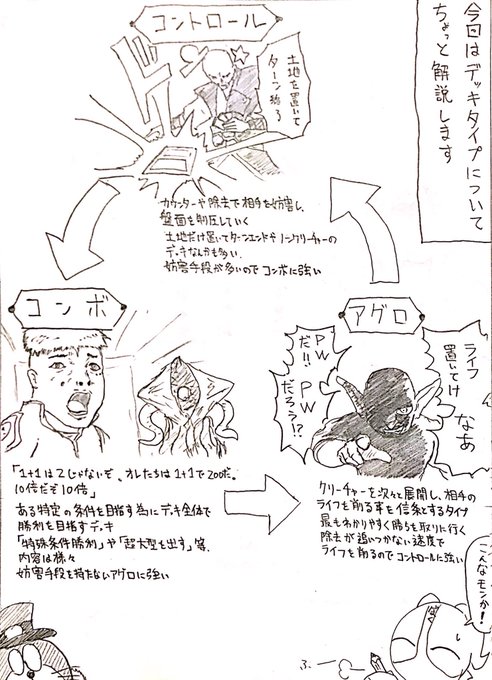 今回はデッキタイプについて
ちょっと解説します
コントロール
ドン
土地を置いて
ターン終了
カウンターや除去で相手を妨害し、
盤面を制圧していく
土地だけ置いてターンエンドやノンクリーチャーの
デッキなんかも多い
妨害手段が多いのでコンボに強い
コンボ
「1+1は2じゃないぞ、オレたちは1+1で200だ。
10倍だぞ10倍」
ある特定の条件を目指す為にデッキ全体で
勝利を目指すデッキ
「特殊条件勝利」や「超大型を出す」等、
内容は様々
妨害手段を持たないアグロに強い
アグロ
ライフ
置いてけ
なあ
PW
だ!!
PW
だろう!?
クリーチャーを次々と展開し、相手の
ライフを削る事を信条とするタイプ
最もわかりやすく勝ちを取りに行く
除去が追いつかない速度で
ライフを削るのでコントロールに強い
こんなモンか!
ふー